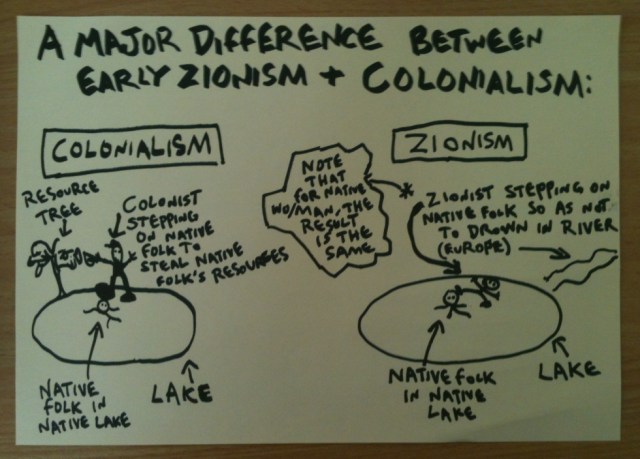 A MAJOR DIFFERENCE BETWEEN
EARLY ZIONISM + COLONIALISM:
COLONIALISM
RESOURCE
TREE
COLONIST
STEPPING
ON NATIVE
FOLK TO
STEAL NATIVE
FOLK'S RESOURCES
NATIVE
FOLK IN
NATIVE LAKE
LAKE
NOTE
THAT
FOR NATIVE
WO/MAN, THE
RESULT
IS THE
SAME
*
ZIONISM
ZIONIST STEPPING ON
NATIVE FOLK SO AS NOT
TO DROWN IN RIVER
(EUROPE)
NATIVE FOLK
IN NATIVE
LAKE
LAKE